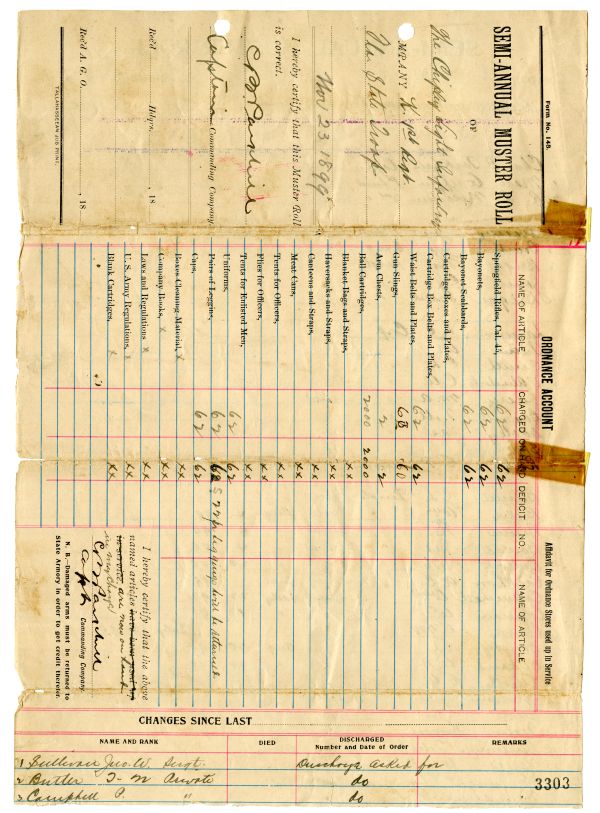 Form No. 148.
SEMI-ANNUAL MUSTER ROLL
OF
The Chipley Light Infantry
MPANY K 1st Regt.
Fla. State Troop
Nov 23 1899
I hereby certify that this Muster Roll
is correct.
Captain Commanding Company.
Rec'd Hdqs. , 18
Rec'd A. G. O. , 18
TALLAHASSEEAN JOB PRINT.
ORDNANCE ACCOUNT
Affidavit for Ordnance Stores used up in Service
NAME OF ARTICLE CHARGED ON HAND DEFICIT NO. NAME OF ARTICLE
Springfield Rifles, Cal. 45, 62 62
Bayonets, 62 62
Bayonet Scabbards, 62 62
Cartridge Boxes and Plates,
Cartridge Box Belts and Plates,
Waist Belts and Plates, 62 62
Gun Slings, 60
Arm Chests, 2 2
Ball Cartridges, 2000 2000
Blanket Bags and Straps, xx
Haversacks and Straps, xx
Canteens and Straps, xx
Meat Cans, xx
Tents for Officers, xx
Flies for Officers, xx
Tents for Enlisted Men, xx
Uniforms, 62 62
Pairs of Leggins, 62 62 leggings will be returned
Caps, 62 62
Boxes Cleaning Material, x xx
Company Books, x xx
Laws and Regulations x xx
U. S. Army Regulations, x xx
Blank Cartridges, x xx
I hereby certify that the above
named articles have been used up
in service are now on hand
in my charge
Capt. Commanding Company.
N. B.—Damaged arms must be returned to
State Armory in order to get credit therefor.
CHANGES SINCE LAST
NAME AND RANK DIED DISCHARGED
Number and Date of Order REMARKS
1 Sullivan Jno. W. Sergt. Discharge asked for
2 Butler T- M Private do
3 Campbell P. " do
3303